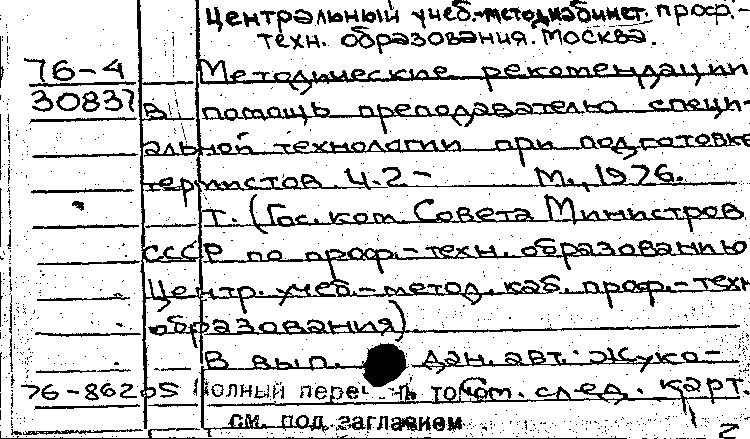 Центральный учеб.-методкабинет проф.-
техн. образования. Москва.
76-4 Методические рекомендации
30837 В помощь преподавателю специ-
альной технологии при подготовке
термистов. Ч.2- М., 1976.
т. (Гос. ком. Совета Министров
СССР по проф.-техн. образованию
Центр. учеб.-метод. каб. проф.-техн
образования)
В вып. дан. авт. Жуко-
76-86205 Полный перечень томов см. след. карт.
см. под заглавием 2